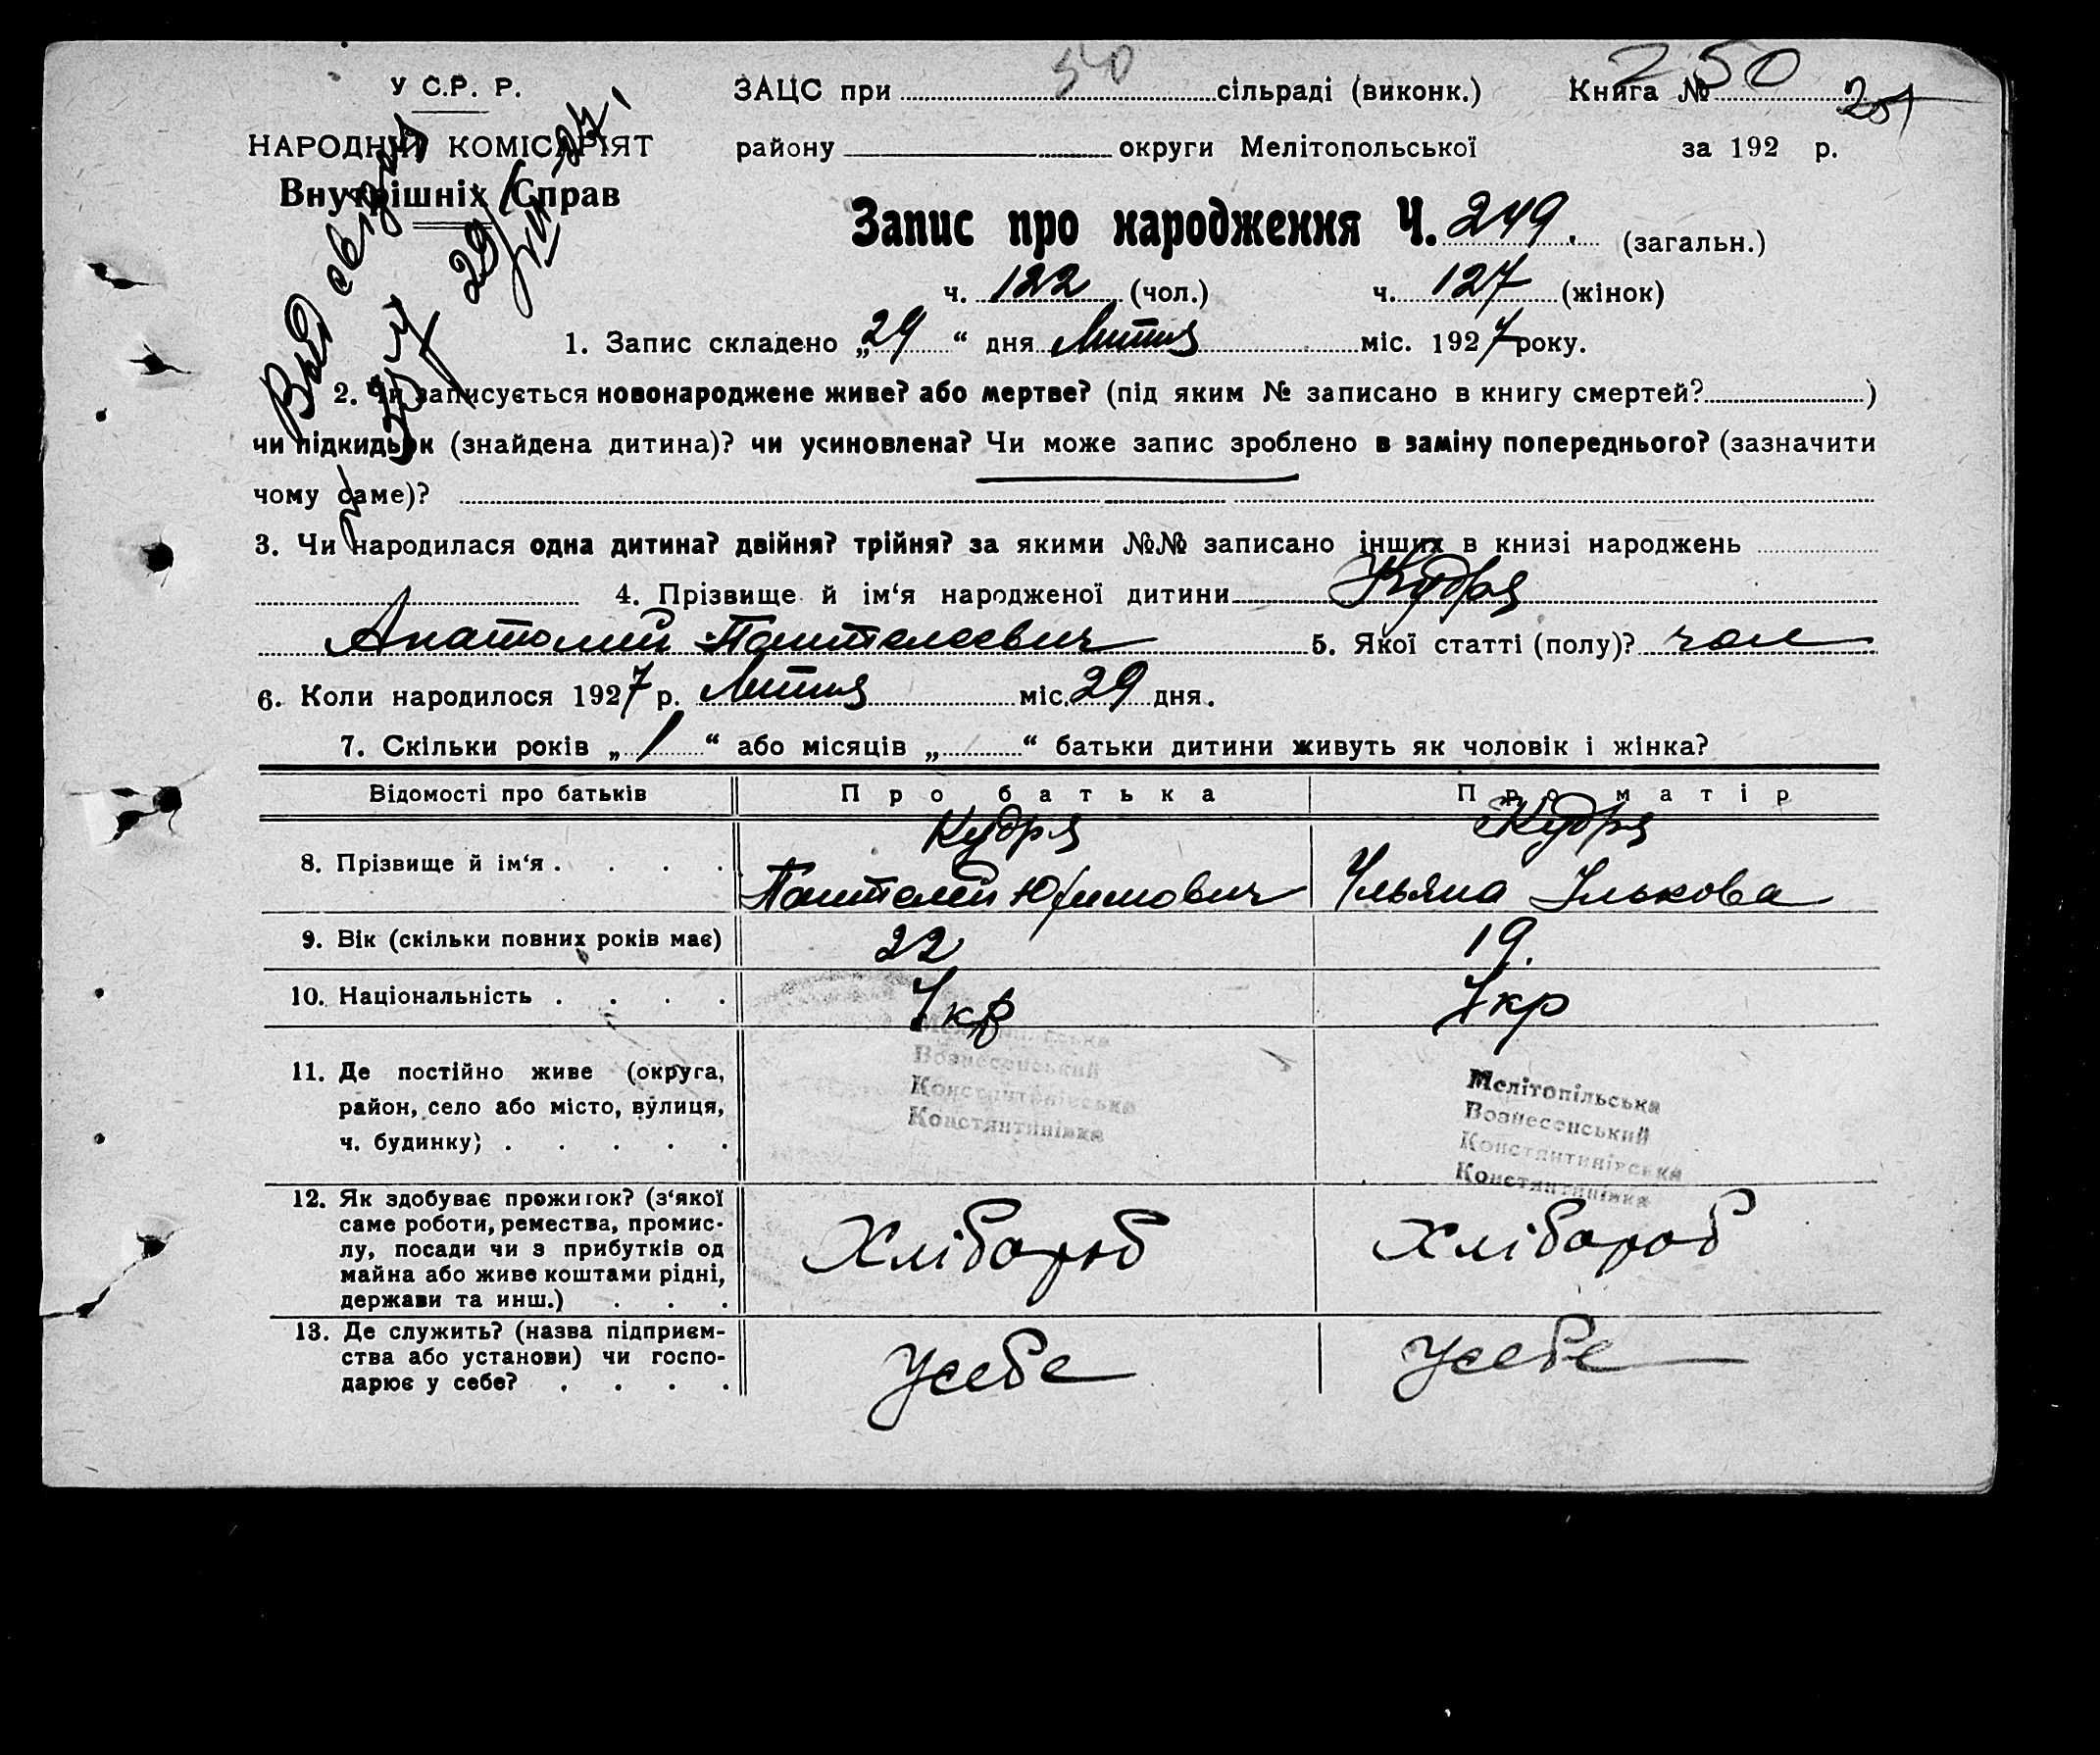 У С.Р. Р.
НАРОДНІЙ КОМІСАРІЯТ
Внутрішніх Справ
540
ЗАЦС при сільраді (виконк.) Книга № 250
251
району округи Мелітопольської за 192 р.
Запис про народження Ч. 249. (загальн.)
ч. 122 (чол.) ч. 127 (жінок)
1. Запис складено „29“ дня Липня міс. 1927 року.
2. Чи записується новонароджене живе? або мертве? (під яким № записано в книгу смертей? )
чи підкидьок (знайдена дитина)? чи усиновлена? Чи може запис зроблено в заміну попереднього? (зазначити
чому саме)?
3. Чи народилася одна дитина? двійня? трійня? за якими №№ записано інших в книзі народжень
4. Прізвище й ім‘я народженої дитини Кудря
Анатолий Пантелеевич 5. Якої статті (полу)? чол
6. Коли народилося 1927 р. Липня міс. 29 дня.
7. Скільки років „1“ або місяців „ “ батьки дитини живуть як чоловік і жінка?
Відомості про батьків Про батька Про матір
8. Прізвище й ім‘я . . . . Кудря Пантелей Юхимович Кудря Ульяна Ількова
9. Вік (скільки повних років має) 22 19.
10. Національність . . . . Укр Укр
11. Де постійно живе (округа,
район, село або місто, вулиця,
ч. будинку) . . . . .
Вознесенський
Константинівська
Константинівка
Мелітопільська
Вознесенський
Константинівська
Константинівка
12. Як здобуває прожиток? (з‘якої
саме роботи, ремества, промис-
лу, посади чи з прибутків од
майна або живе коштами рідні,
держави та инш.) . . .
Хлібороб Хлібороб
13. Де служить? (назва підприєм-
ства або установи) чи госпо-
дарює у себе? . . . .
Усебе Усебе